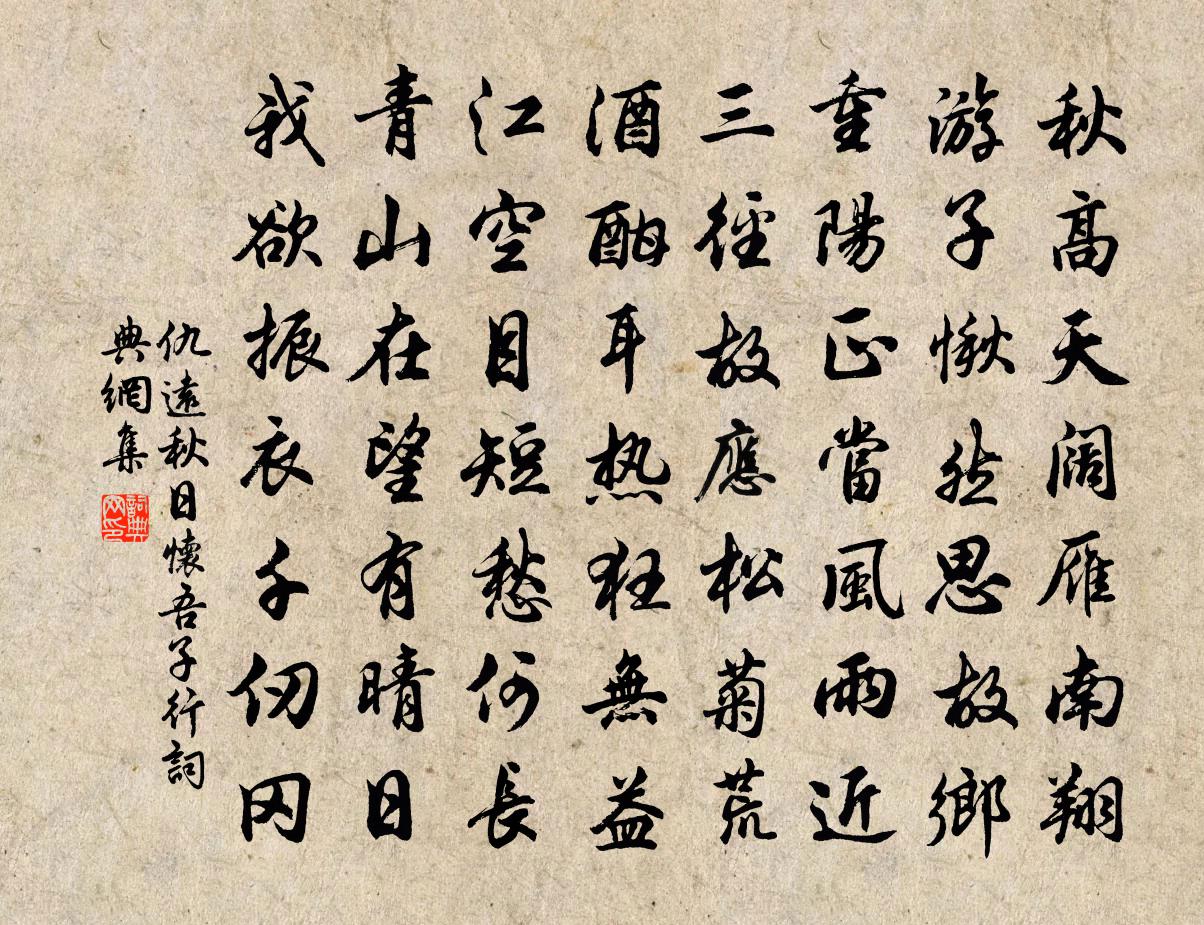 秋高天阔雁南翔
游子愀然思故鄉
重陽正當風雨近
三徑故應松菊荒
酒酣耳热狂無益
江空目短愁何長
青山在望有晴日
我欲振衣千仞冈
仇遠秋日懷吾子行詞
典網集
詞典網印